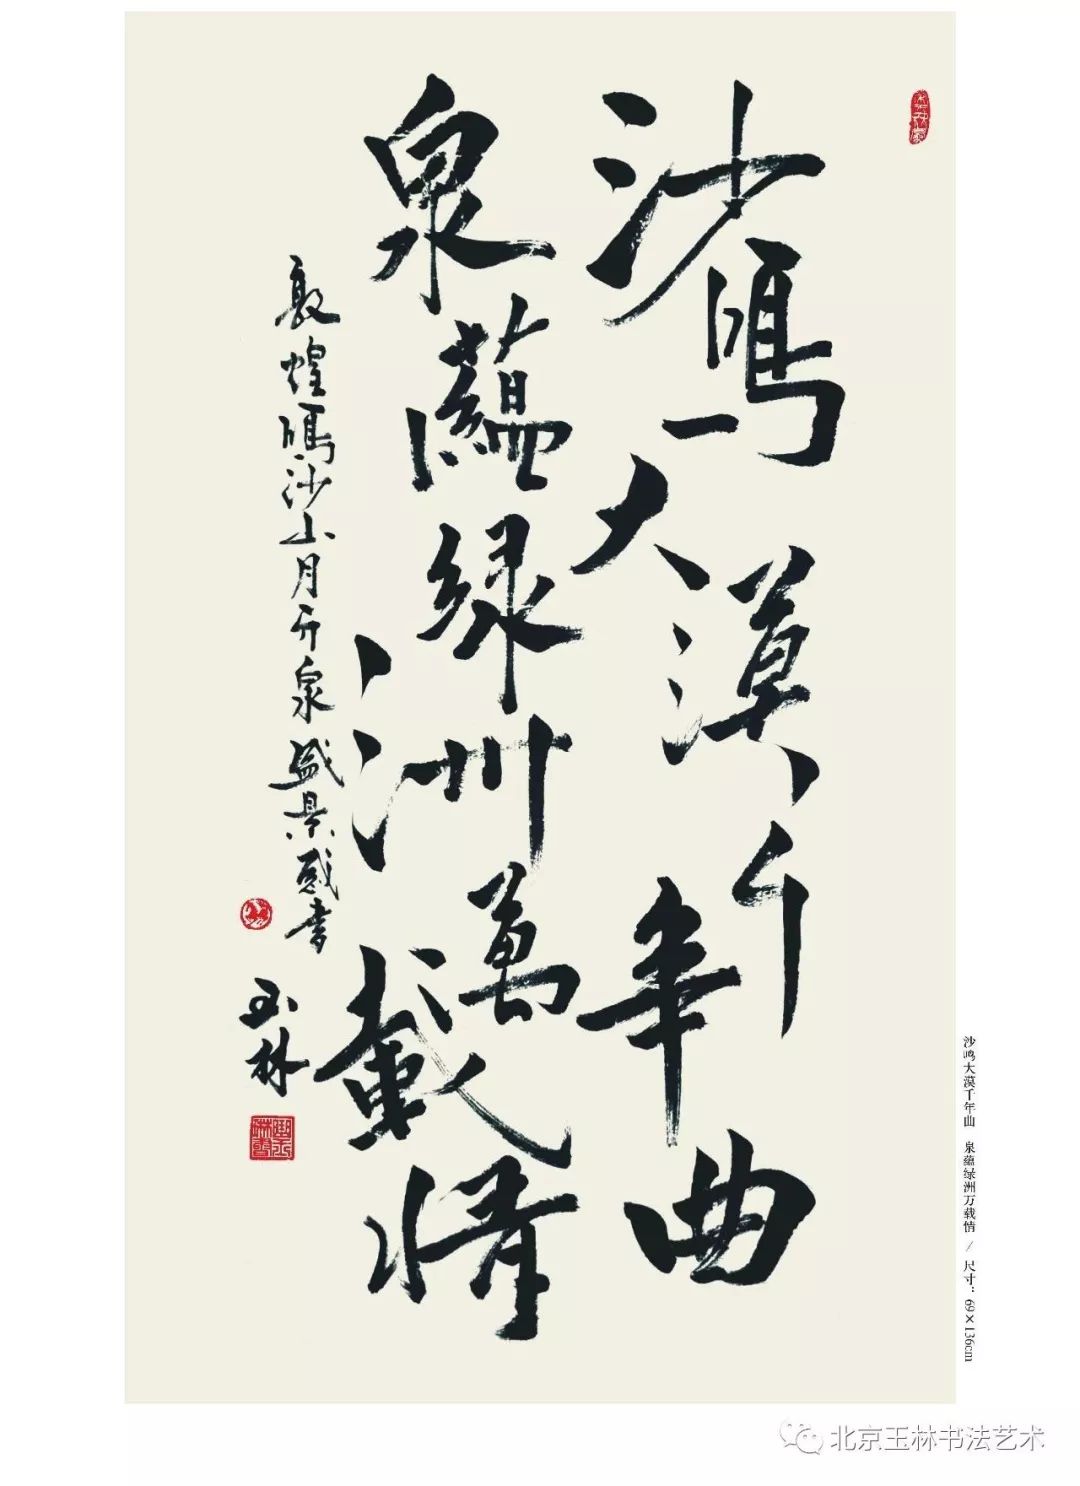 沙鳴大漠千年曲
泉蘊緑洲萬載情
敦煌鳴沙山月牙泉盛景感書
玉林
沙鸣大漠千年曲 泉蕴绿洲万载情 / 尺寸：69×136cm
北京玉林书法艺术